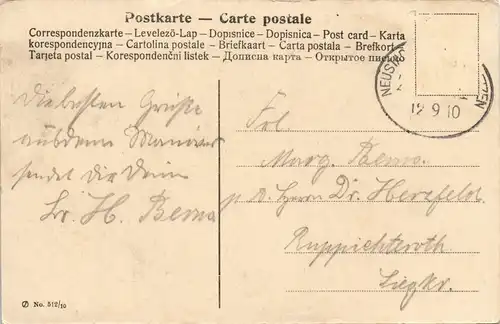 Postkarte — Carte postale
Correspondenzkarte – Levelező-Lap – Dopisnice – Dopisnica – Post card – Karta
korespondencyjna – Cartolina postale – Briefkaart – Carta postala – Brefkort
Tarjeta postal – Korespondenční listek – Дописна карта – Открытое письмо
NEUSTAD
12 9 10
Die besten Grüße
aus dem Manöver
sendet Dir Dein
Br. H. Bema
Frl.
Marg. Bema.
p. A. Herrn Dr. Herzfeld
Ruppichteroth
Siegkr.
No. 512/10